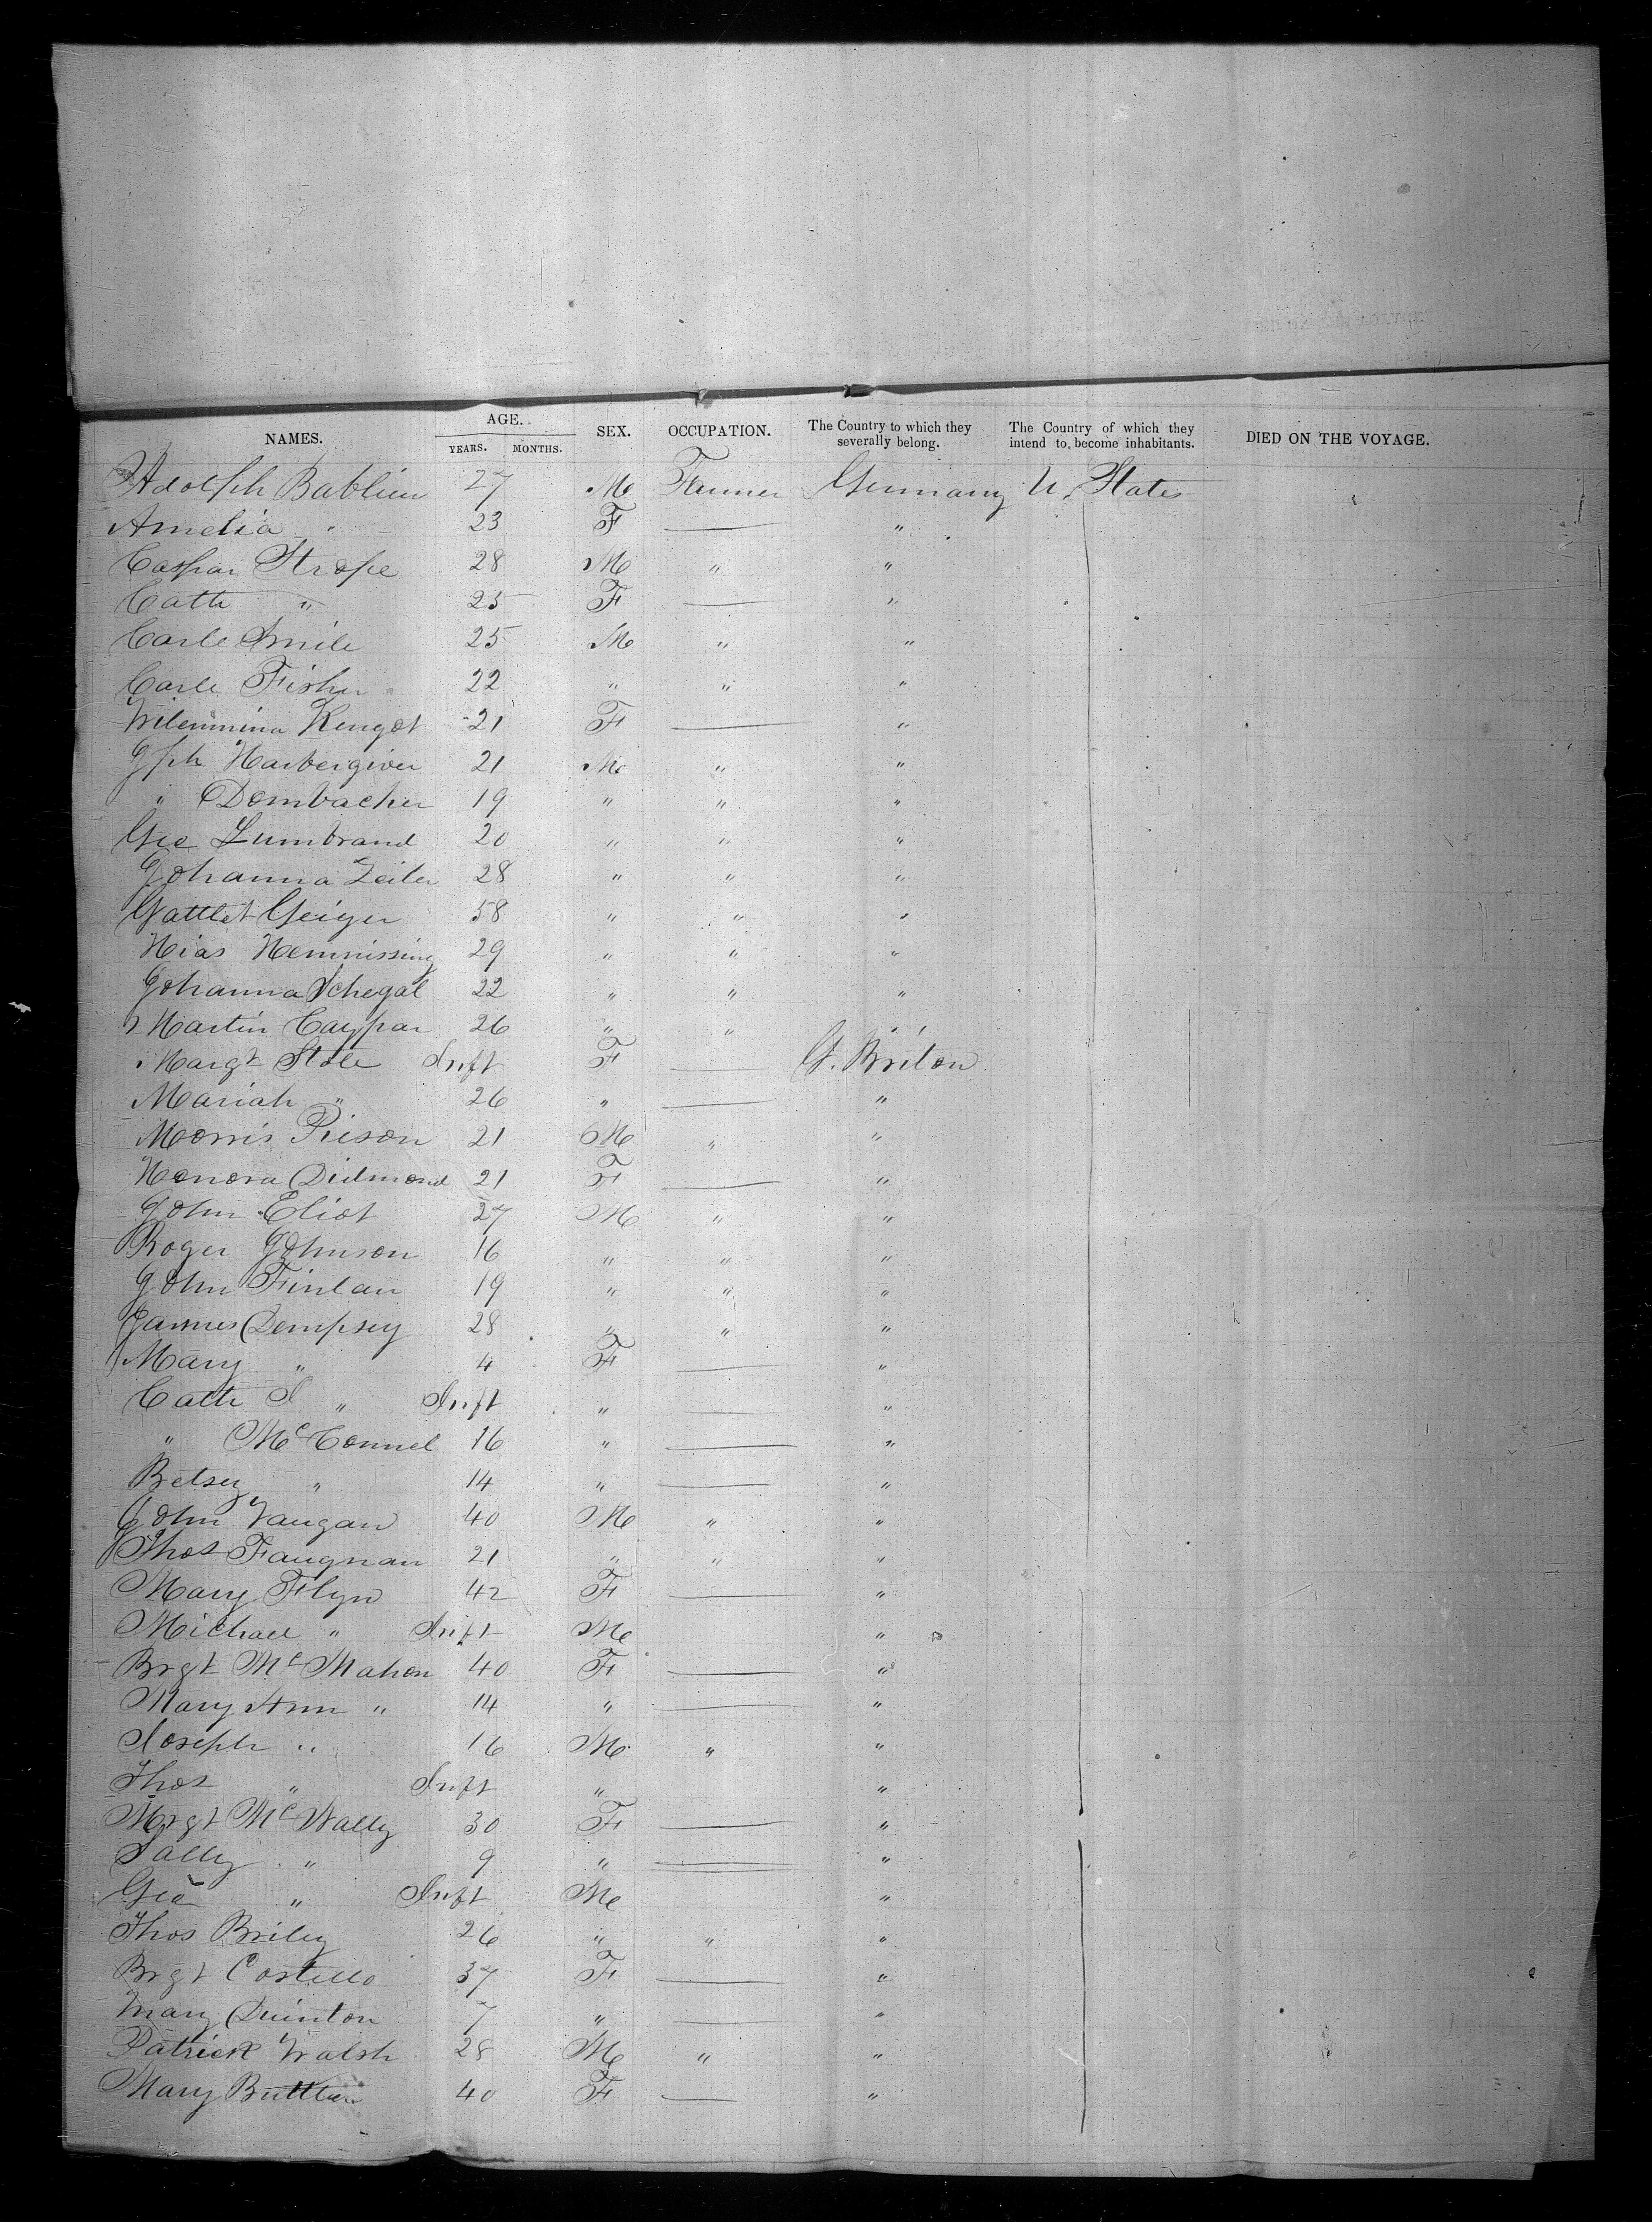 NAMES. AGE. YEARS. MONTHS. SEX. OCCUPATION. The Country to which they severally belong. The Country of which they intend to become inhabitants. DIED ON THE VOYAGE.
Adolph Bablien 27 M Farmer Germany U. States
Amelia " 23 F — "
Caspar Strope 28 M " "
Cath " 25 F — "
Carle Smile 25 M " "
Carle Fisher 22 " " "
Wilemmina Kengot 21 F — "
Jph Harbergiver 21 M " "
" Dombacher 19 " " "
Geo Lumbrand 20 " " "
Johanna Zeiler 28 " " "
Gattlet Geiger 58 " " "
Hias Hemmissing 29 " " "
Johanna Schegal 22 " " "
Martin Caypar 26 " " "
Margt Stole Inft F — G. Briton
Mariah " 26 " — "
Morris Pieson 21 M " "
Honora Didmond 21 F — "
John Eliot 27 M " "
Roger Johnson 16 " " "
John Finlan 19 " " "
James Dempsey 28 " " "
Mary " 4 F — "
Cath S " Inft " — "
" McConnel 16 " — "
Betsey " 14 " — "
John Vaugan 40 M " "
Thos Faugnan 21 " " "
Mary Flyn 42 F — "
Michael " Inft M "
Brgt McMahon 40 F — "
Mary Ann " 14 " — "
Joseph " 16 M " "
Thos " Inft " "
Mrgt McNally 30 F — "
Sally " 9 " — "
Geo " Inft M "
Thos Briley 26 " " "
Brgt Costello 37 F — "
Mary Quinton 7 " — "
Patrick Walsh 28 M " "
Mary Buttler 40 F — "